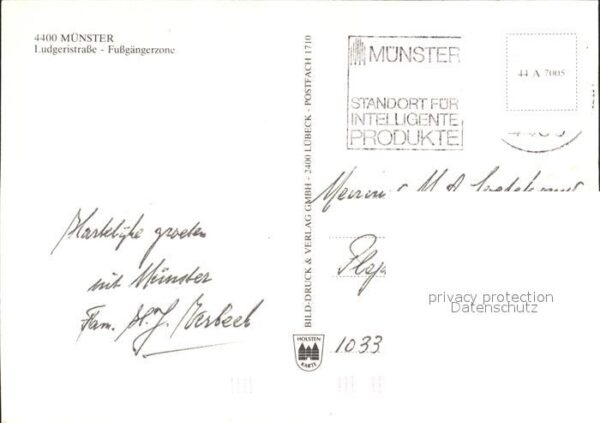 4400 MÜNSTER
Ludgeristraße - Fußgängerzone
BILD-DRUCK & VERLAG GMBH - 2400 LÜBECK - POSTFACH 1710
MÜNSTER
STANDORT FÜR
INTELLIGENTE
PRODUKTE
44 A 7005
Hartelijke groeten
uit Münster
Fam. H. J. Verbeek
HOLSTEN
KARTE
1033
privacy protection
Datenschutz